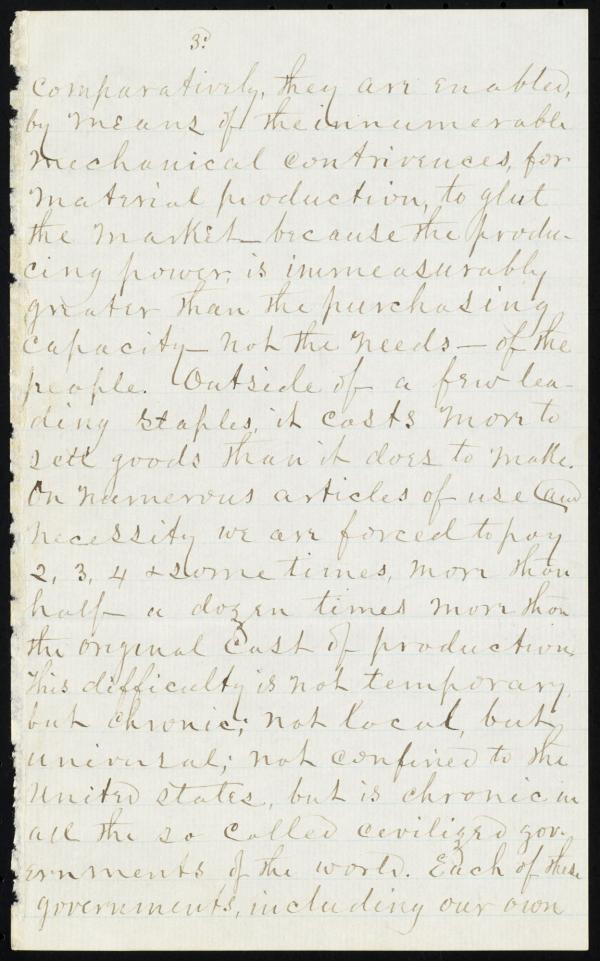 3d
comparatively, they are enabled,
by means of the innumerable
mechanical contrivences, for
material production, to glut
the market — because the produ-
cing power, is immeasurably
greater than the purchasing
capacity — not the needs — of the
people. Outside of a few lea-
ding staples, it costs more to
sell goods than it does to make.
On numerous articles of use and
necessity we are forced to pay
2, 3, 4 & sometimes, more than
half a dozen times more than
the original cost of production.
This difficulty is not temporary,
but chronic; not local, but
universal; not confined to the
United states, but is chronic in
all the so called civilized gov-
ernments of the world. Each of these
governments, including our own